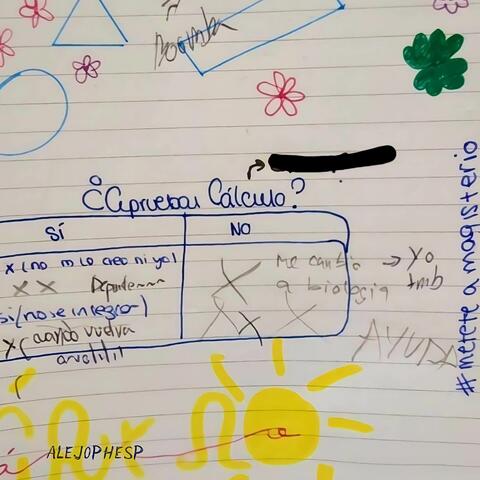 Boomba
¿Apruebas Cálculo?
SÍ NO
x (no me lo creo ni yo)
x x Depende~~~
si (no se integrar)
x (cuando vuelva
x
me cambio
a biología
→ yo
tmb
x x x
AYUDA
#metete a magisterio
ALEJOPHESP